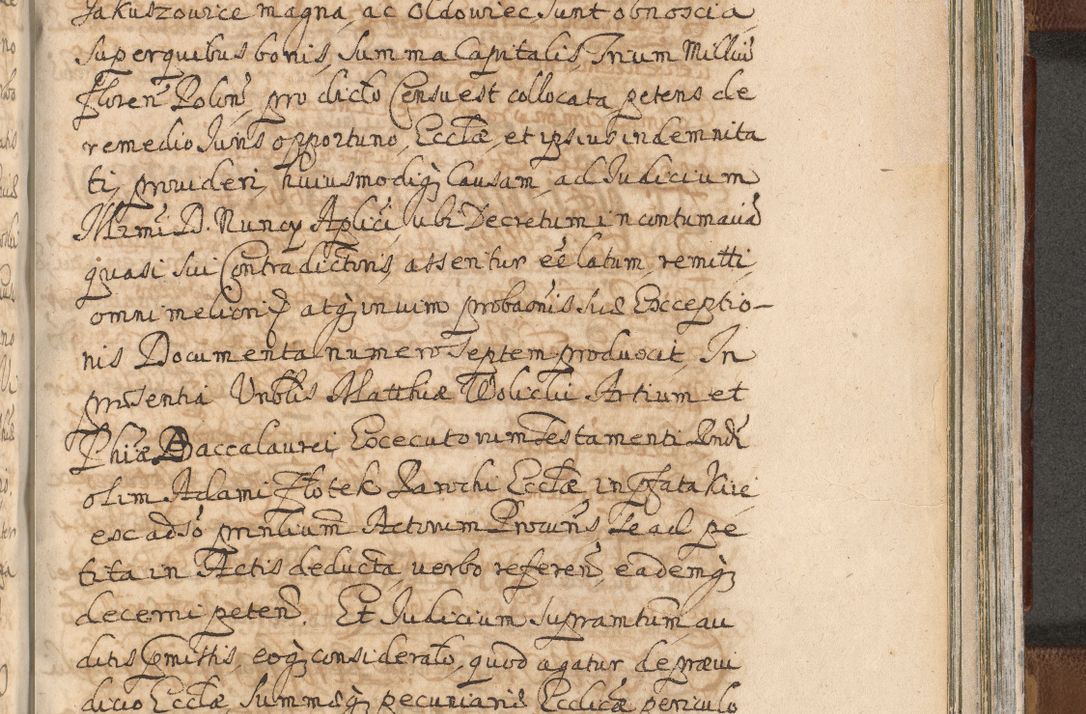 Jakuszowice magna, ac Oldowiec sunt obnoscia
super quibus bonis, summa Capitalis, Trium Milliũ
Floren̄ Polon̄, pro dicto Censu est collocata petens de
remedio Juris opportuno, Ecclæ, et ipsius indemnita
ti, provideri, huiusmodiq; Causam, ad Judicium
Illrmi D. Nuncy Aplici, ubi Decretum in contumaciã
quasi sui Contradictoris, asseritur eẽ latum, remitti
omni meliori atq; in vim probaonis suæ Exceptio-
nis Documenta numero septem produxit, In
præsentia Vnblis Matthiæ Wolicki Artium et
Phiæ Baccalaurei Executorum Testamenti Rndi
olim Adami Flotek Parochi Ecclæ, in præfata Kije
esc adso prntium Actorum Procuris, se ad pe
tita in Actis deducta, verbo referen̄, eademq;
decerni peten̄. Et Judicium supramtum au
ditis præmissis, eoq; considerato, quod agatur de prævi
dicio Ecclæ, summæq; pecuniariæ Ecclicæ periculo